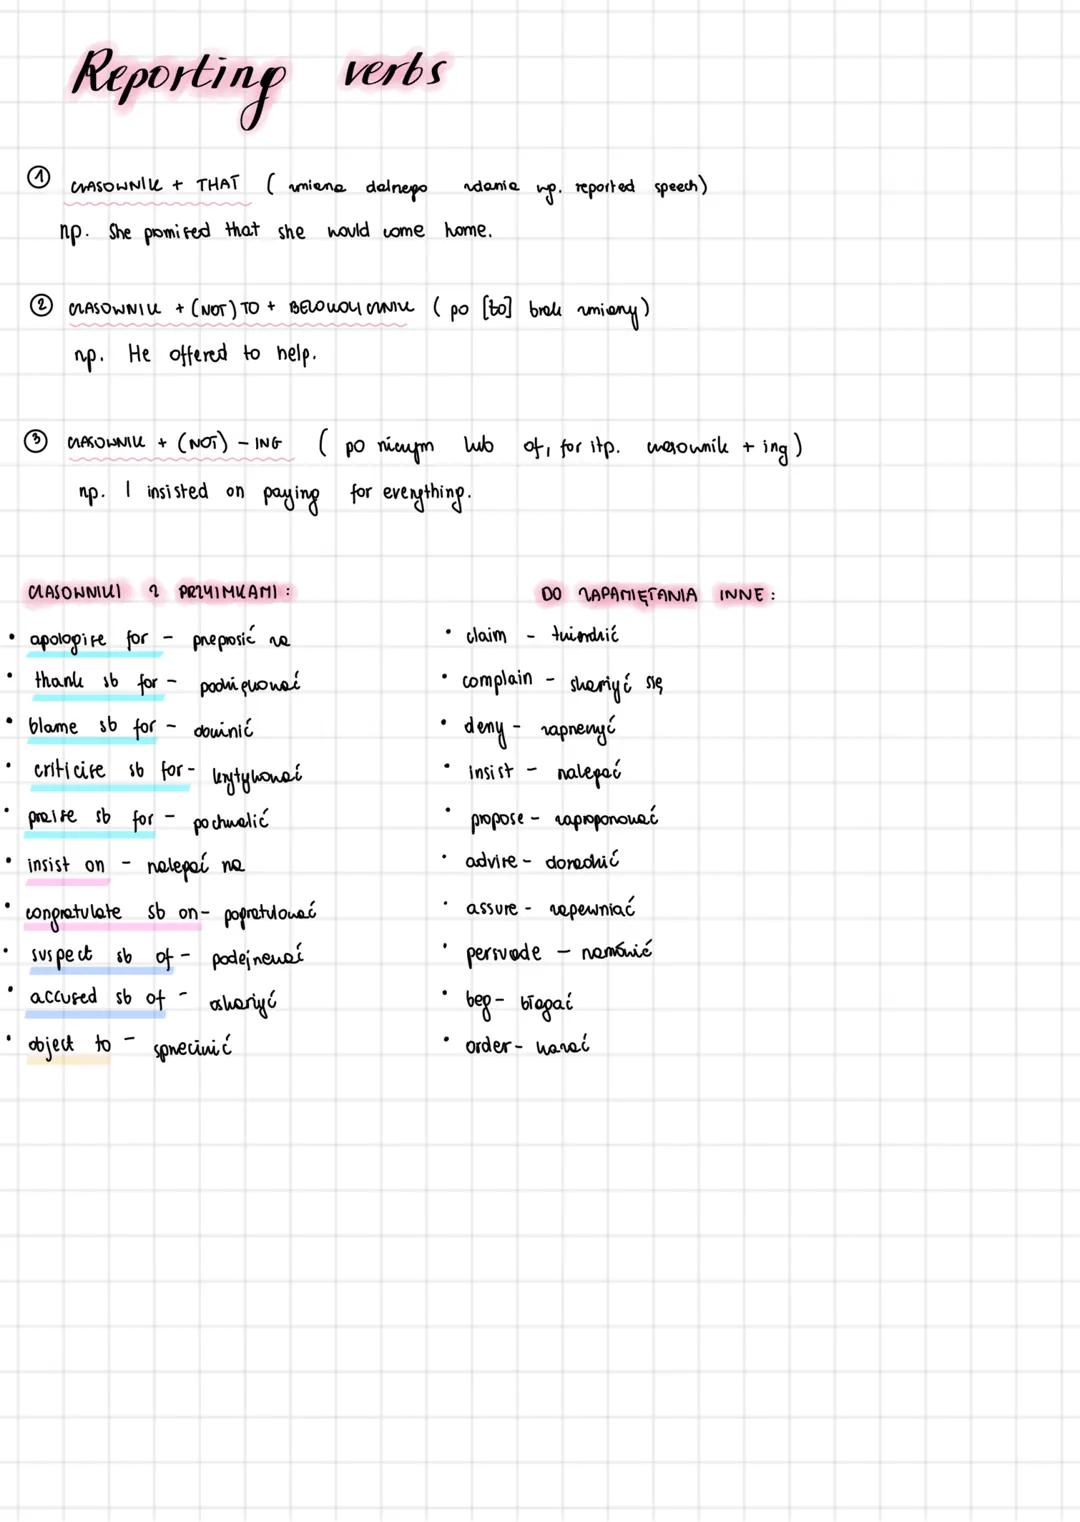 Reporting verbs
① CZASOWNIK + THAT ( zmiana dalnego zdania np. reported speech)
np. She promised that she would come home.
② CZASOWNIK + (NOT) TO + BEZOKOLICZNIK ( po [to] brak zmiany)
np. He offered to help.
③ CZASOWNIK + (NOT) - ING ( po niczym lub of, for itp. czasownik + ing)
np. I insisted on paying for everything.
CZASOWNIKI Z PRZYIMKAMI :
• apologize for - przeprosić za
• thank sb for - podziękować
• blame sb for - obwinić
• criticize sb for - krytykować
• praise sb for - pochwalić
• insist on - nalegać na
• congratulate sb on - pogratulować
• suspect sb of - podejrzewać
• accused sb of - oskarżyć
• object to - sprzeciwić
DO ZAPAMIĘTANIA INNE :
• claim - twierdzić
• complain - skarżyć się
• deny - zaprzeczyć
• insist - nalegać
• propose - zaproponować
• advize - doradzić
• assure - zapewniać
• persuade - namówić
• beg - błagać
• order - kazać